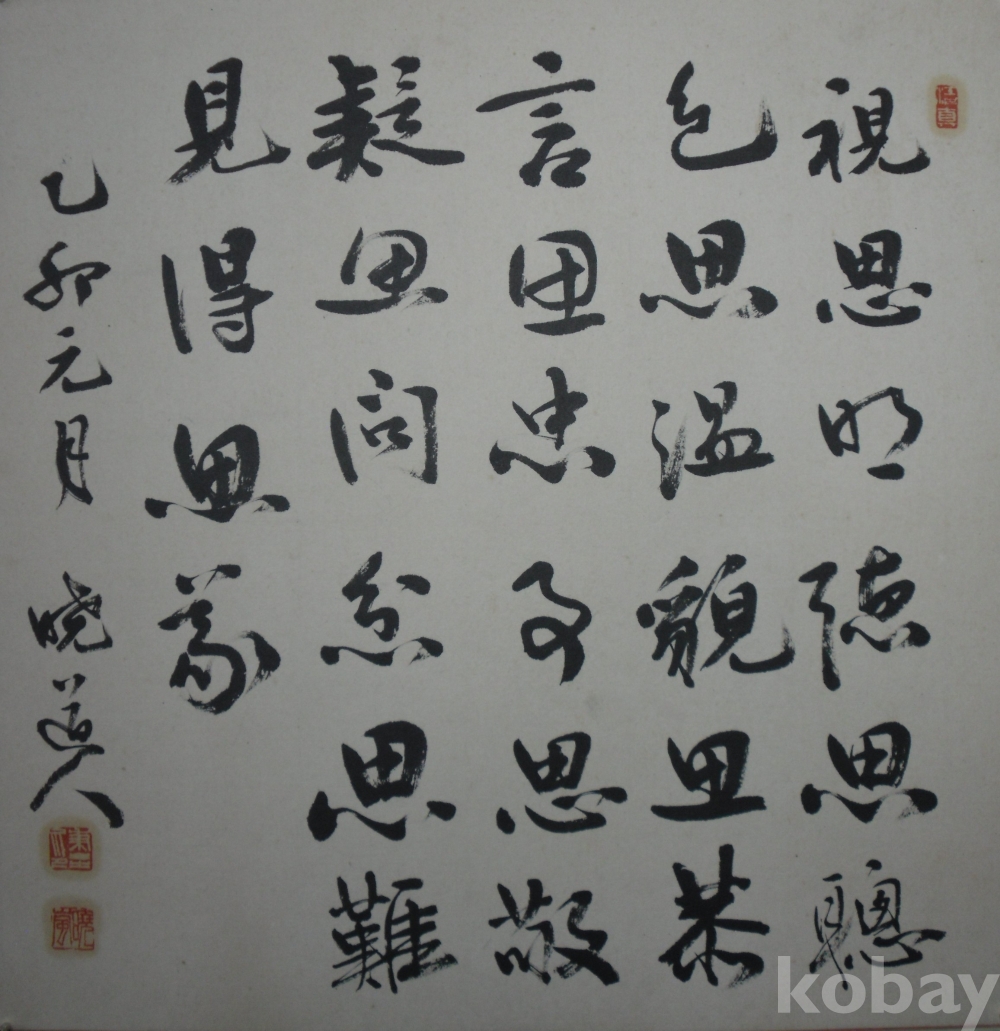 視思明聴思聰
色思溫貌思恭
言思忠事思敬
疑思問忿思難
見得思義
乙卯元月 晓道人
kobay